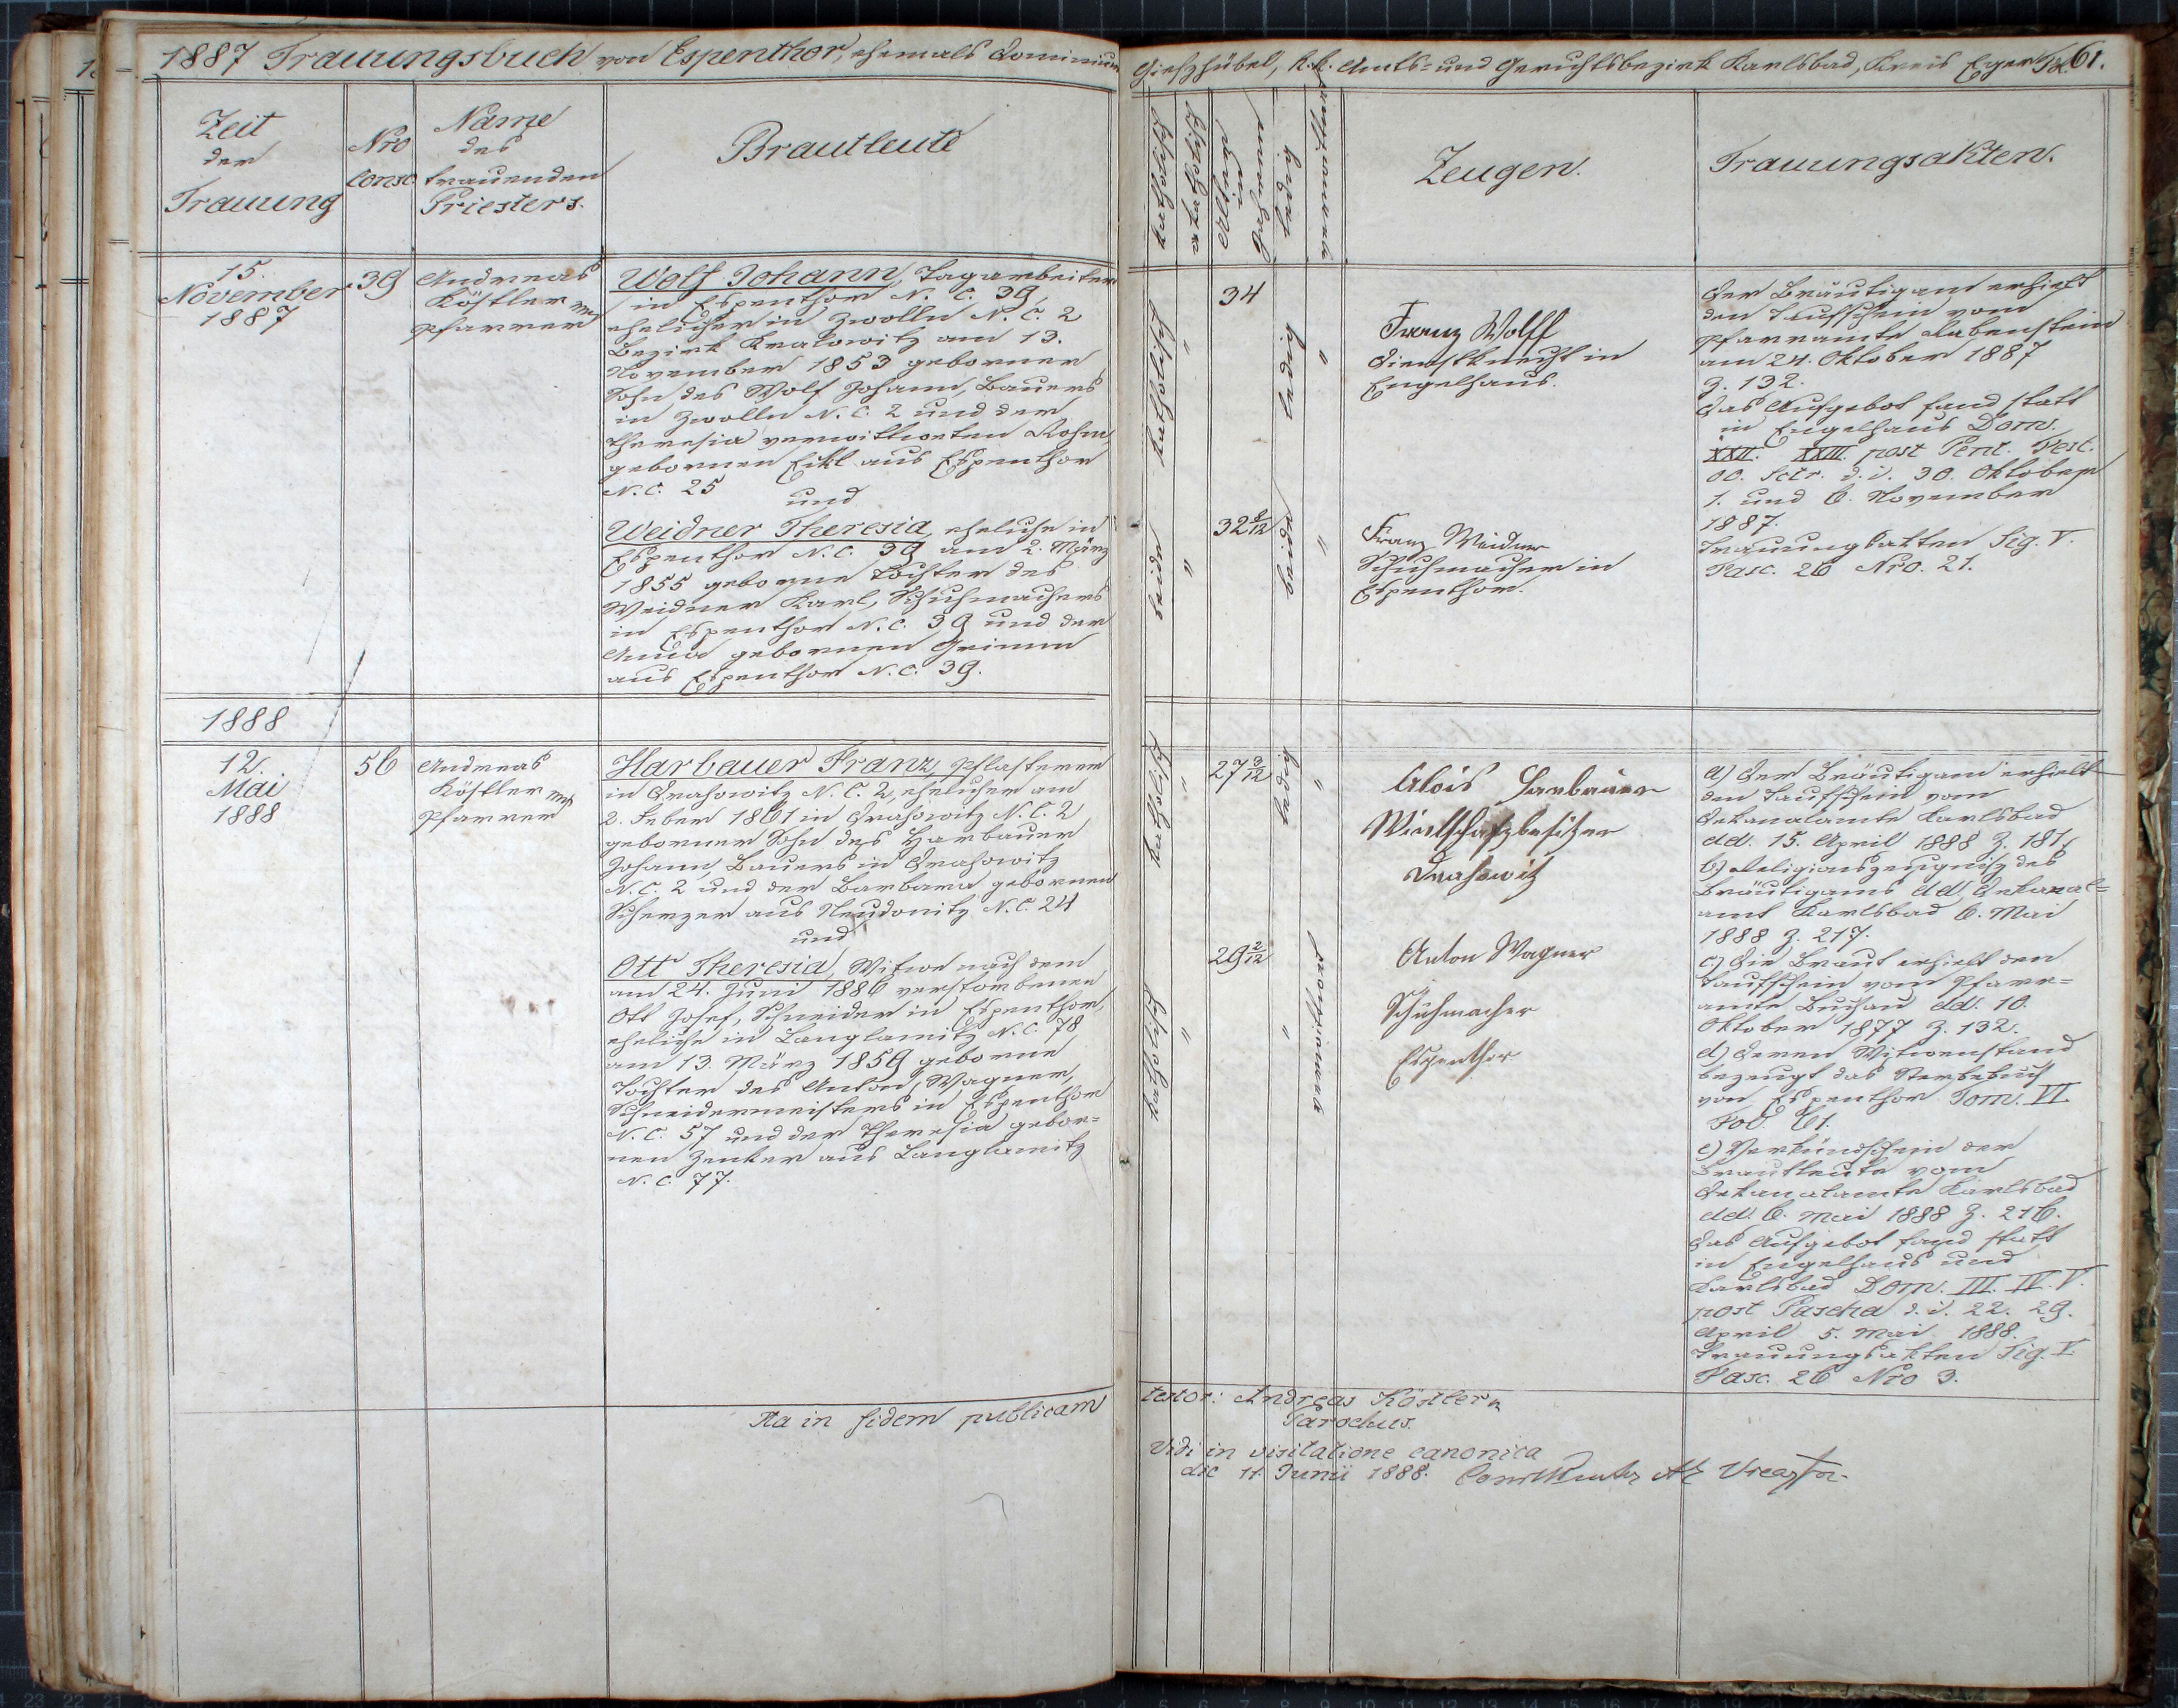 1887 Trauungsbuch von Espenthor, ehemals Dominium
Gießhübel, k.k. Amts- und Gerichtsbezirk Karlsbad, Kreis Eger Fol. 61.
Zeit
der
Trauung
Nro
Consc.
Name
des
trauenden
Priesters.
Brautleute
katholisch
akatholisch
Alter
in
Jahren
ledig
verwittwet
Zeugen.
Trauungsakten.
15.
November
1887
39
Andreas
Köstler
Pfarrer
Wolf Johann, Tagarbeiter
in Espenthor N. C. 39,
ehelicher in Zwolln N. C. 2
Bezirk Kralowitz am 13.
November 1853 geborner
Sohn des Wolf Johann, Bauers
in Zwolln N. C. 2 und der
Theresia verwittweten
gebornen Eckl aus Espenthor
N. C. 25
und
Weidner Theresia, eheliche in
Espenthor N. C. 39 am 2. März
1855 geborne Tochter des
Weidner Karl, Schuhmachers
in Espenthor N. C. 39 und der
Anna gebornen Grimm
aus Espenthor N. C. 39.
beide katholisch
"
"
34
32 8/12
beide ledig
"
"
Franz Wolff
Dienstknecht in
Engelhaus.
Franz Weidner
Schuhmacher in
Espenthor.
Der Bräutigam erhielt
den Taufschein vom
Pfarramte Rabenstein
am 24. Oktober 1887
Z. 132.
Das Aufgebot fand statt
in Engelhaus Dom.
XXII. XXIII. post Pent. Fest.
OO. Sctr. d. i. 30. Oktober
1. und 6. November
1887.
Trauungsakten Sig. V.
Fasc. 26 Nro. 21.
1888
12.
Mai
1888
56
Andreas
Köstler
Pfarrer
Harbauer Franz, Pflasterer
in Drahowitz N. C. 2, ehelicher am
2. Feber 1861 in Drahowitz N. C. 2
geborner Sohn des Harbauer
Johann, Bauers in Drahowitz
N. C. 2 und der Barbara gebornen
Scherzer aus Neudonitz N. C. 24
und
Ott Theresia, Witwe nach dem
am 24. Juni 1886 verstorbenen
Ott Josef, Schneider in Espenthor,
eheliche in Langlamitz N. C. 78
am 13. März 1859 geborne
Tochter des Anton Wagner,
Schneidermeisters in Espenthor
N. C. 57 und der Theresia gebor=
nen Zenker aus Langlamitz
N. C. 77.
katholisch
"
27 3/12
ledig
"
katholisch
"
29 2/12
"
verwittwet
Alois Harbauer
Wirtschaftsbesitzer
Drahowitz
Anton Wagner
Schuhmacher
Espenthor
a) Der Bräutigam erhielt
den Taufschein vom
Dekanalamte Karlsbad
dd. 15. April 1888 Z. 181,
b) Religionszeugniß des
Bräutigams dd. Dekanal=
amt Karlsbad 6. Mai
1888 Z. 217.
c) Die Braut erhielt den
Taufschein vom Pfarr=
amte Buchau dd. 10.
Oktober 1877 Z. 132.
d) Deren Witwenstand
bezeugt das Sterbebuch
von Espenthor Tom. VI.
Fol. 61.
e) Verkündschein der
Brautleute vom
Dekanalamte Karlsbad
dd. 6. Mai 1888 Z. 216.
Das Aufgebot fand statt
in Engelhaus und
Karlsbad Dom. III. IV. V.
post Pascha d. i. 22. 29.
April 5. Mai 1888.
Trauungsakten Sig. V.
Fasc. 26 Nro 3.
Ita in fidem publicam
testor: Andreas Köstler
Parochus.
Vidi in visitatione canonica
die 11. Junii 1888.